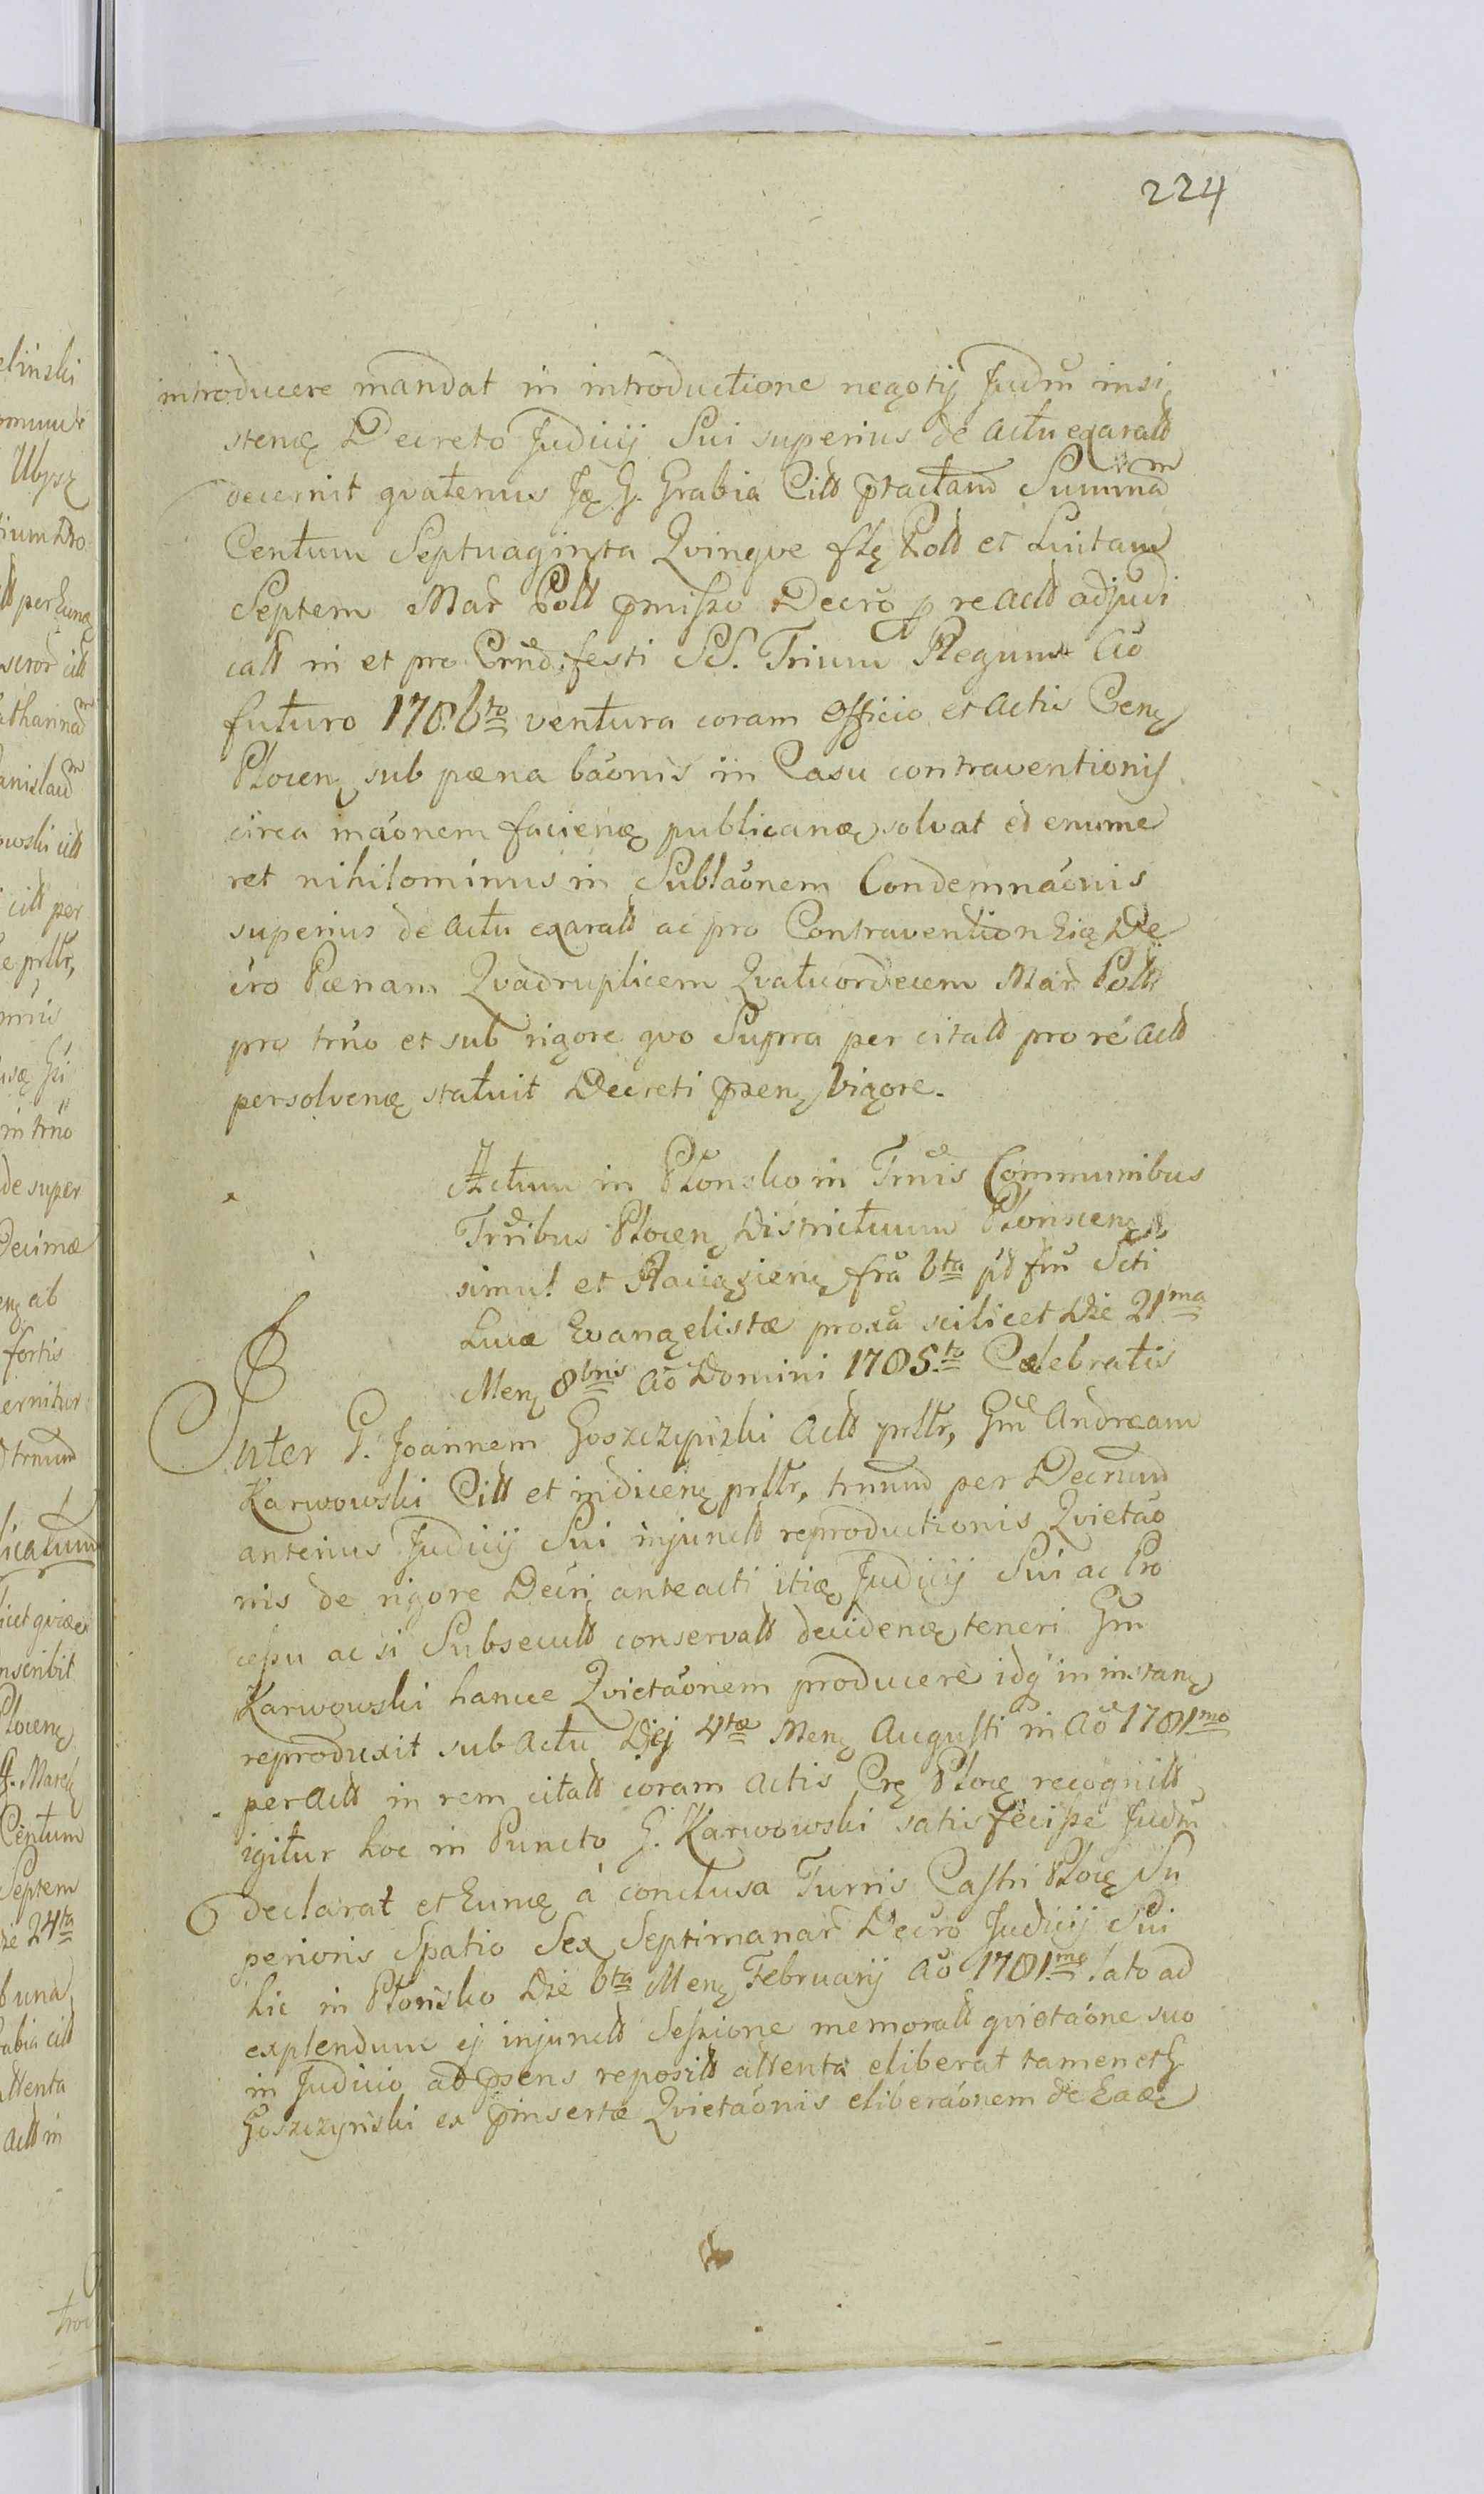 224
introducere mandat in introductione negotij Judm insi
stenę Decreto Judicij Sui superius de actu exaratt
decernit qvatenus G. Grabia Citt ptactam Summam
Centum Septuaginta Qvinqve flę Pol et Luitam
Septem Mar Poll pmisso Decro p re Actt adjudi
catt in et pro Crnd festi SS. Trium Regum Ao
futuro 1786to ventura coram Officio et Actis Cenę
Plocenę sub pæna báonis in Casu contraventionis
circa máonem facienę publicanę solvat et enume
ret nihilominus in Subláonem Condemnáonis
superius de actu exaratt ac pro Contravention Eię De
cro Pænam Qvadruplicem Qvatuordecem Mar Poll
pro trno et sub rigore qvo Supra per citatt pro re actt
persolvenę statuit Decreti psenę vigore.
Actum in Płonsko in Trnis Communibus
Trribus Plocenę Districtuum Plonnenę
simul et Raciązienę fra 6ta pt fm Scti
Lucæ Evangelistæ proxa scilicet Die 21ma
Menę 8bris Ao Domini 1785to Celebratis
Inter G. Joannem Goszczynski Actt prllr, Gm Andream
Karwowski Citt et indicenę prllr, trnum per Decrum
anterius Judicij Sui injunctt reproductionis Qvietáo
nis de rigore Decri anteacti itię Judicij Sui ac Pro
cessu ac si Subsecutt conservatt decidenę teneri Gm
Karwowski hance Qvietáonem producere idq in instanę
reproduxit sub Actu Diej 4tæ Menę Augusti in Ao 1781mo
per Actt in rem citatt coram Actis Crę Plocę recognitt
igitur hoc in Puncto G. Karwowski satisfecisse Judm
declarat et Eumę á conclusa Turris Castri Plocę Su
perioris Spatio Sex Septimanar Decro Judicij Sui
hic in Płonsko Die 6ta Menę Februarij Ao 1781mo lato ad
explendum ej injunctt Sessione memoratt qvietáone suo
in Judicio ad psens repositt attenta eliberat tamen et G
Goszczynski ex pinsertæ Qvietáonis eliberáonem de Eaę